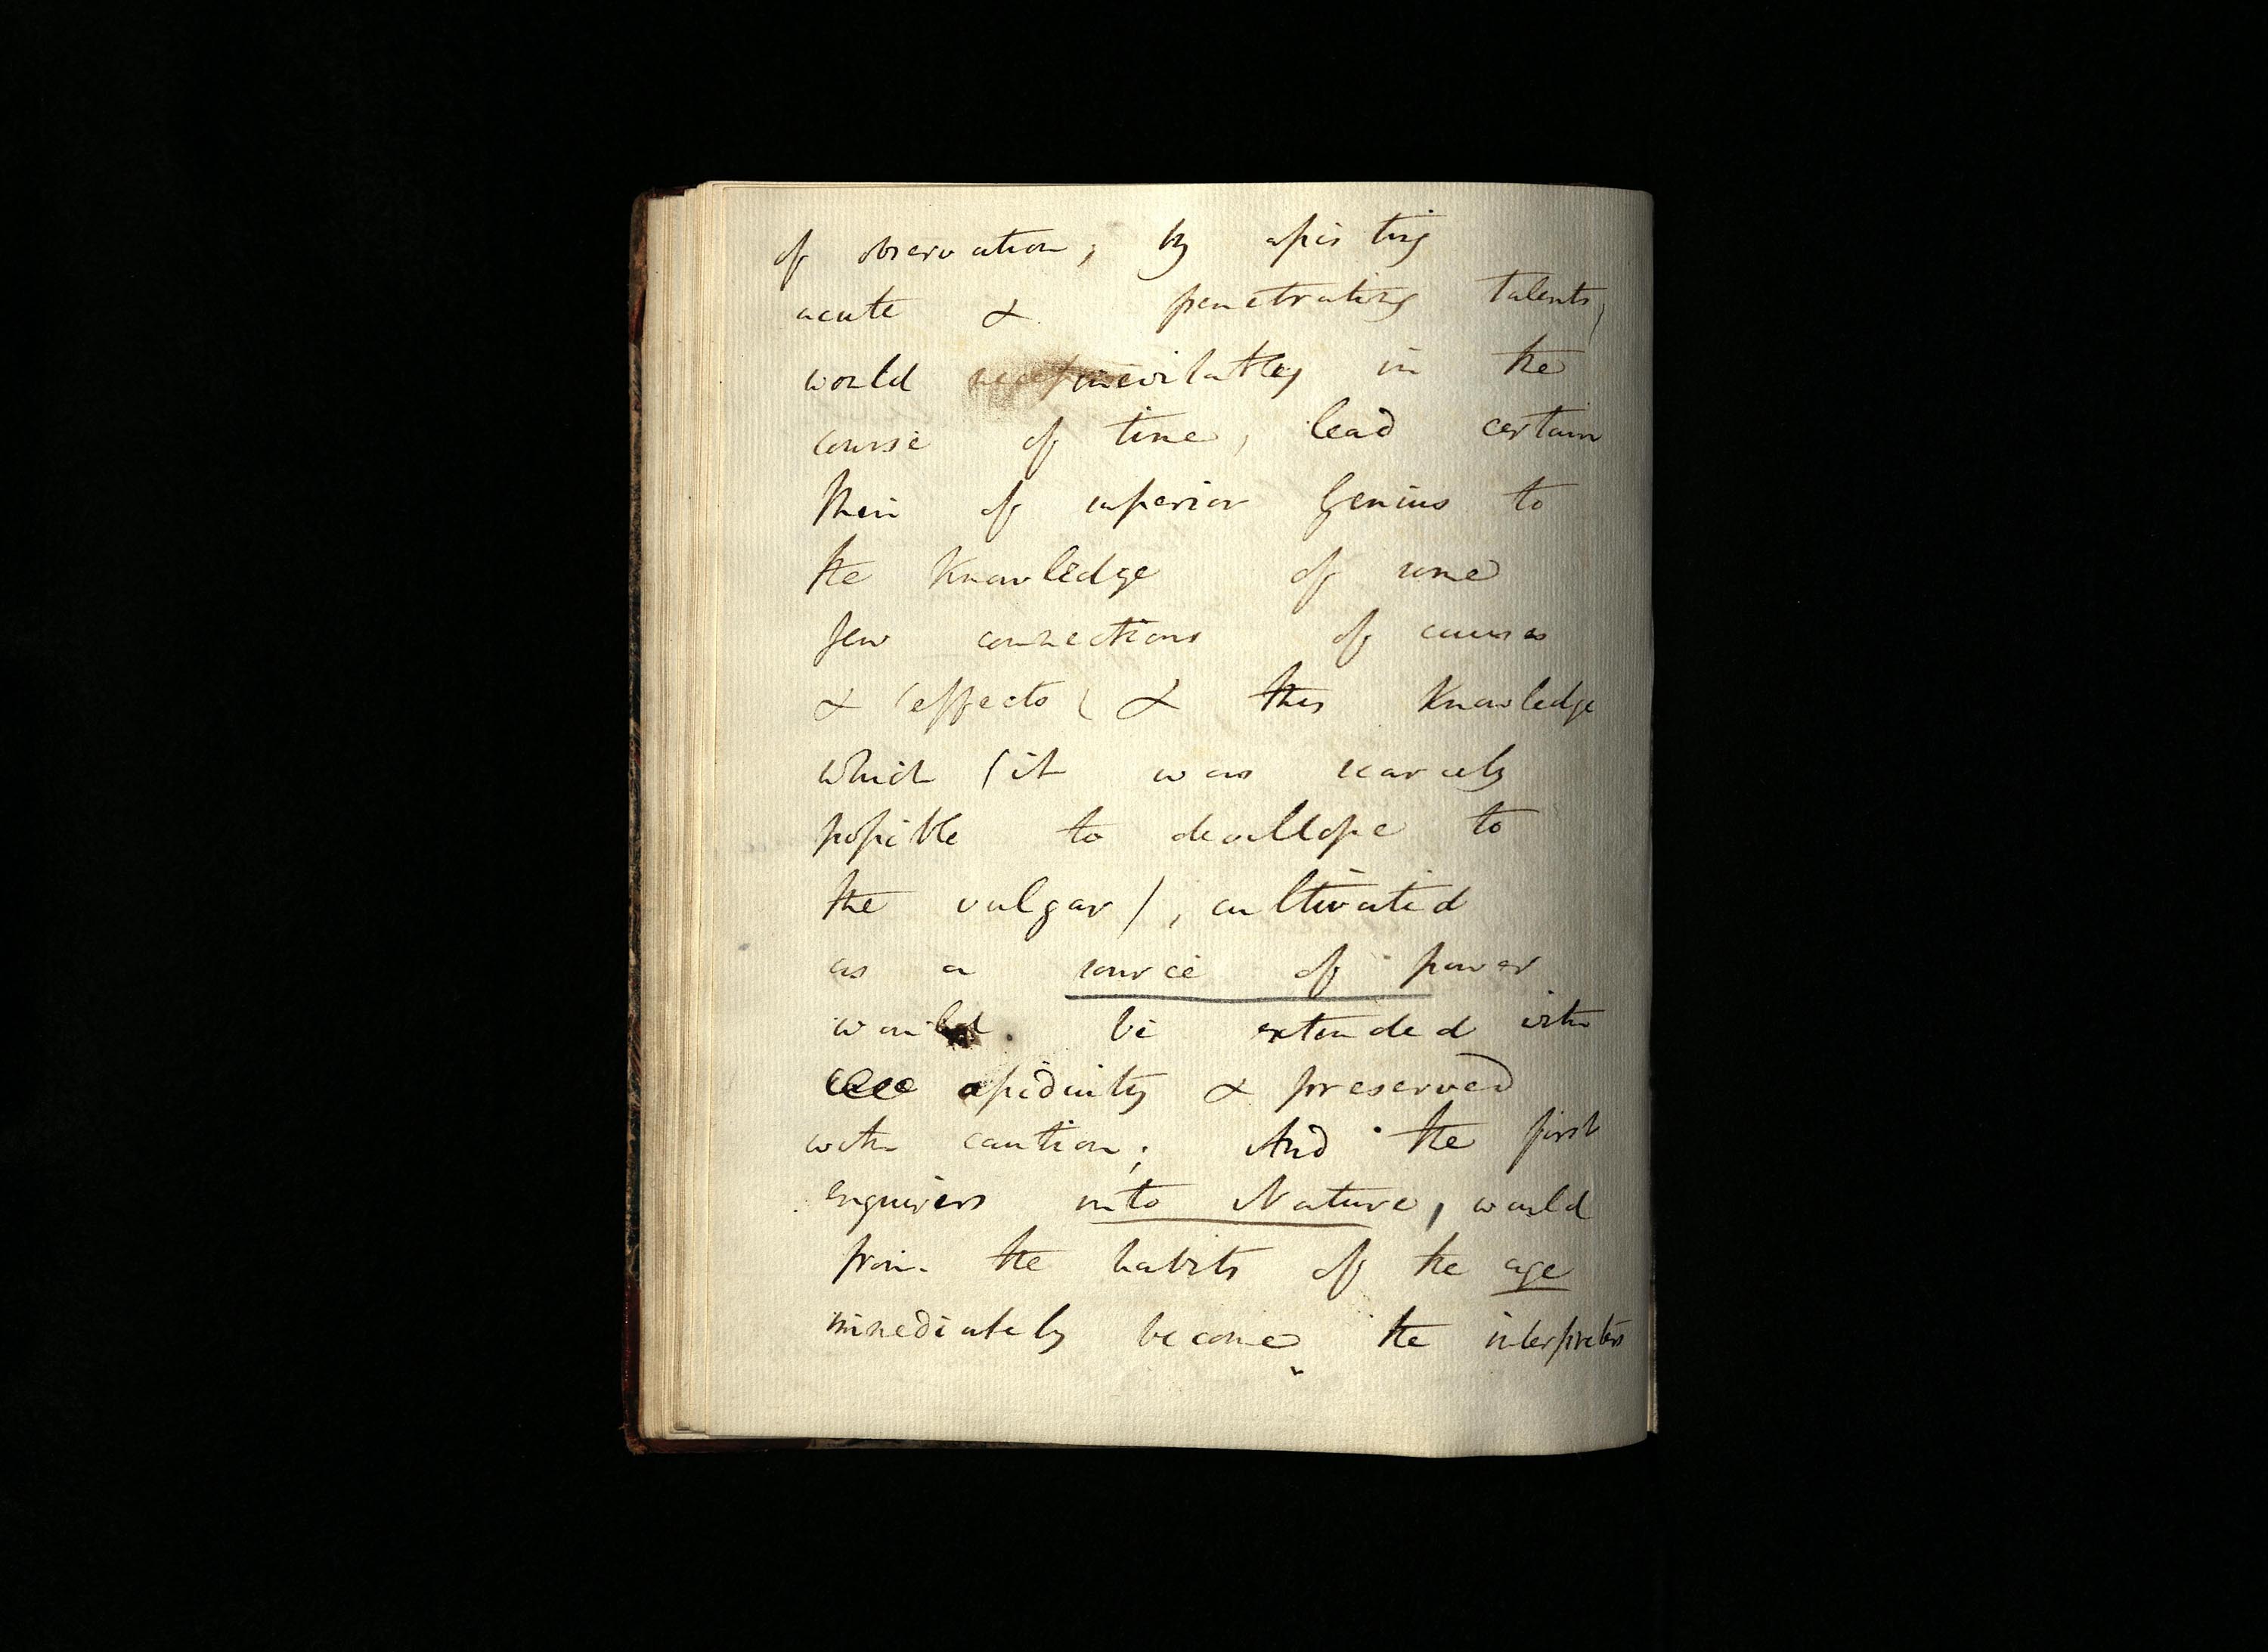 of observation, by assisting
acute & penetrating talents,
would inevitably in the
course of time, lead certain
Men of superior Genius to
the Knowledge of some
few connections of causes
& effects & this Knowledge
which (it was scarcely
possible to devellope to
the vulgar), cultivated
as a source of power
would be extended with
assiduity & preserved
with caution; And the first
enquirers into Nature, would
from the habits of the age
immediately become the interpreters